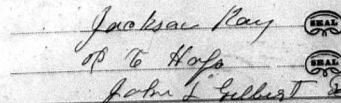 Jackson Ray SEAL
P T Hays SEAL
John L Gilbert